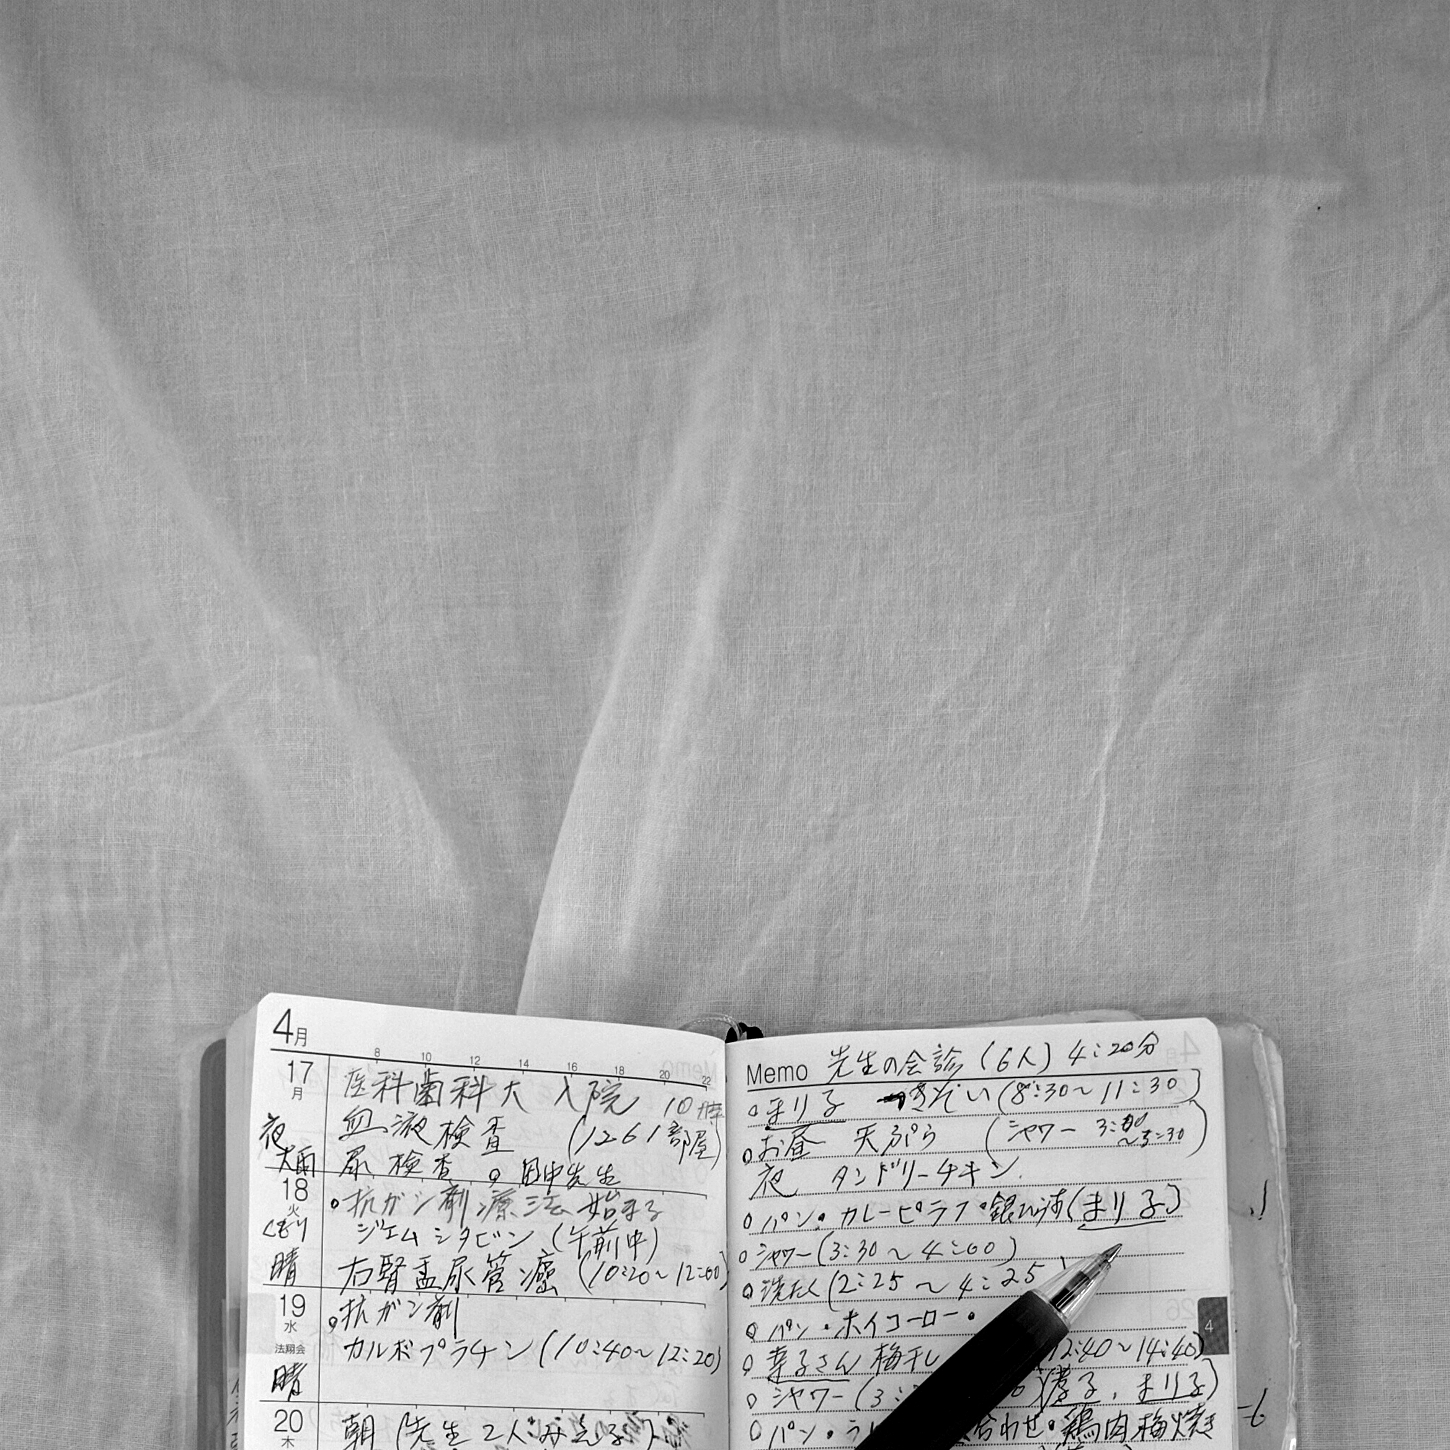 4月
8 10 12 14 16 18 20 22
17 月 医科歯科大 入院 10時
夜 血液検査 (1261部屋)
大雨 尿検査 。田中先生
18 火 ・抗ガン剤療法 始まる
くもり ジェムシタビン (午前中)
晴 右腎盂尿管癌 (10:20～12:00)
19 水 。抗ガン剤
法翔会 カルボプラチン (10:40～12:20)
晴
20 木 朝 (先生2人みえる)
Memo 先生の会診 (6人) 4:20分
。まり子 つきそい (8:30～11:30)
。お昼 天ぷら (シャワー 3:00
～3:30)
夜 タンドリーチキン
。パン。カレーピラフ・銀ひらす(まり子)
。シャワー (3:30～4:00)
。洗たく (2:25～4:25)
。パン・ホイコーロー・
。菜子さん 梅干し 12:40～14:40)
。シャワー (3: 孝子、まり子)
。パン・ 合わせ・鶏肉梅焼き
4